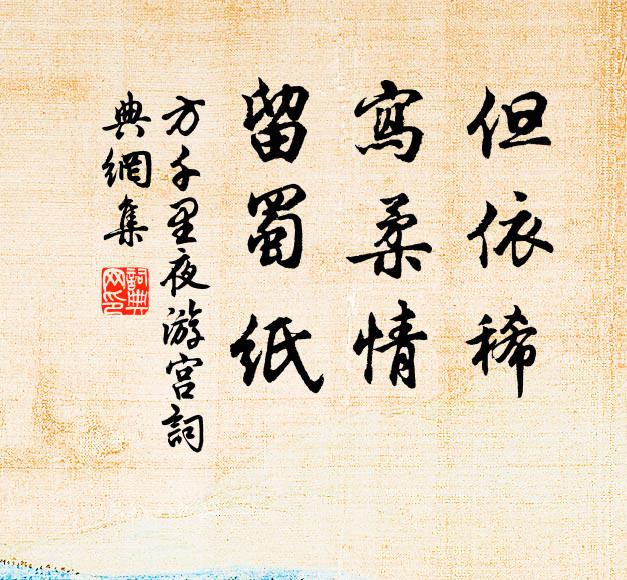 但依稀
寫柔情
留蜀紙
方千里夜游宮詞
典網集
詞典網印